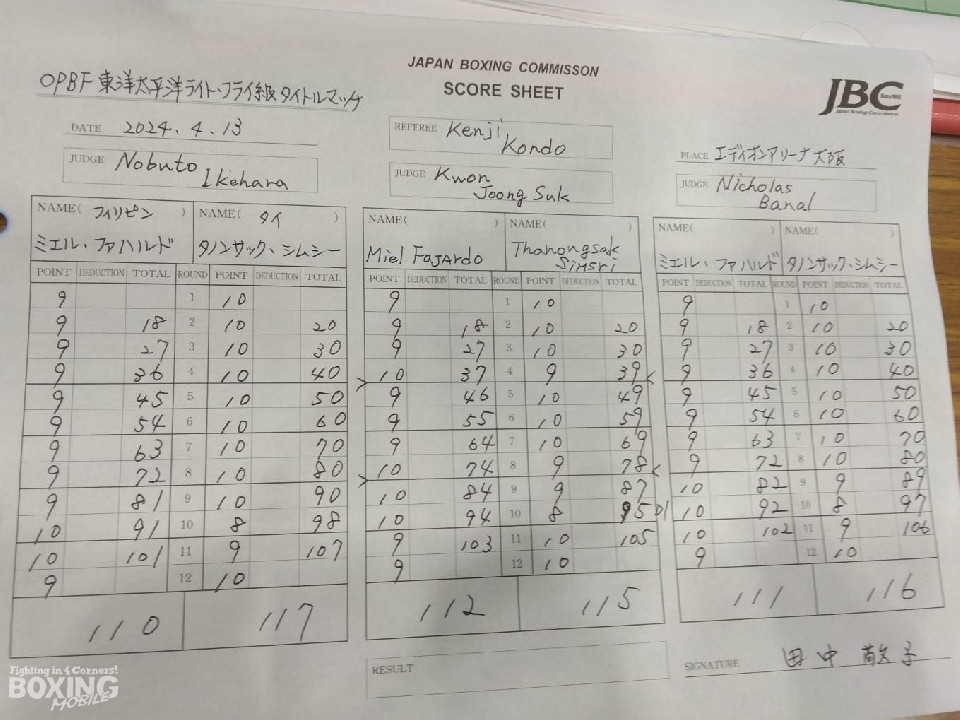 JAPAN BOXING COMMISSON
SCORE SHEET
JBC
OPBF 東洋太平洋ライト・フライ級タイトルマッチ
DATE 2024.4.13
REFEREE Kenji Kondo
PLACE エディオンアリーナ大阪
JUDGE Nobuto Ikehara
JUDGE Kwon Joong Suk
JUDGE Nicholas Banal
NAME( フィリピン ) NAME( タイ )
ミエル・ファハルド タノンサック・シムシー
POINT DEDUCTION TOTAL ROUND POINT DEDUCTION TOTAL
9 1 10
9 18 2 10 20
9 27 3 10 30
9 36 4 10 40
9 45 5 10 50
9 54 6 10 60
9 63 7 10 70
9 72 8 10 80
9 81 9 10 90
10 91 10 8 98
10 101 11 9 107
9 12 10
110 117
NAME( ) NAME( )
Miel Fajardo Thanongsak Simsri
POINT DEDUCTION TOTAL ROUND POINT DEDUCTION TOTAL
9 1 10
9 18 2 10 20
9 27 3 10 30
10 37 4 9 39
9 46 5 10 49
9 55 6 10 59
9 64 7 10 69
10 74 8 9 78
10 84 9 9 87
10 94 10 8 95
9 103 11 10 105
9 12 10
112 115
NAME( ) NAME( )
ミエル・ファハルド タノンサック・シムシー
POINT DEDUCTION TOTAL ROUND POINT DEDUCTION TOTAL
9 1 10
9 18 2 10 20
9 27 3 10 30
9 36 4 10 40
9 45 5 10 50
9 54 6 10 60
9 63 7 10 70
9 72 8 10 80
10 82 9 9 89
10 92 10 8 97
10 102 11 9 106
9 12 10
111 116
RESULT
SIGNATURE 田中敬子
Fighting in 4 Corners!
BOXING
MOBILE